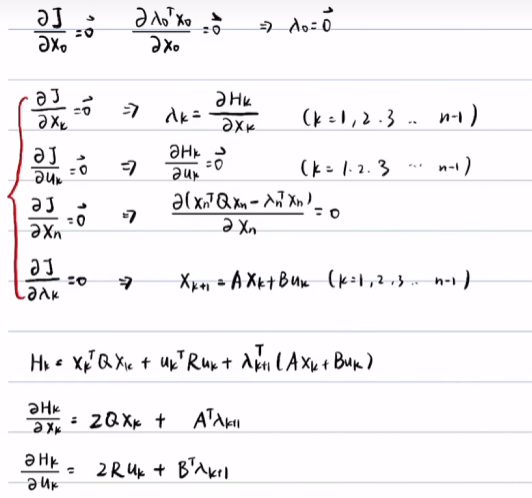 ∂J/∂x₀ = 0⃗   ∂λ₀ᵀx₀/∂x₀ = 0⃗ ⇒ λ₀ = 0⃗
∂J/∂xₖ = 0⃗ ⇒ λₖ = ∂Hₖ/∂xₖ (k=1, 2. 3 .. n-1)
∂J/∂uₖ = 0⃗ ⇒ ∂Hₖ/∂uₖ = 0⃗ (k=1. 2. 3 ... n-1)
∂J/∂xₙ = 0⃗ ⇒ ∂(xₙᵀQxₙ - λₙᵀxₙ)/∂xₙ = 0
∂J/∂λₖ = 0 ⇒ xₖ₊₁ = Axₖ + Buₖ (k=1, 2, 3 .. n-1)
Hₖ = xₖᵀQxₖ + uₖᵀRuₖ + λₖ₊₁ᵀ(Axₖ + Buₖ)
∂Hₖ/∂xₖ = 2Qxₖ + Aᵀλₖ₊₁
∂Hₖ/∂uₖ = 2Ruₖ + Bᵀλₖ₊₁